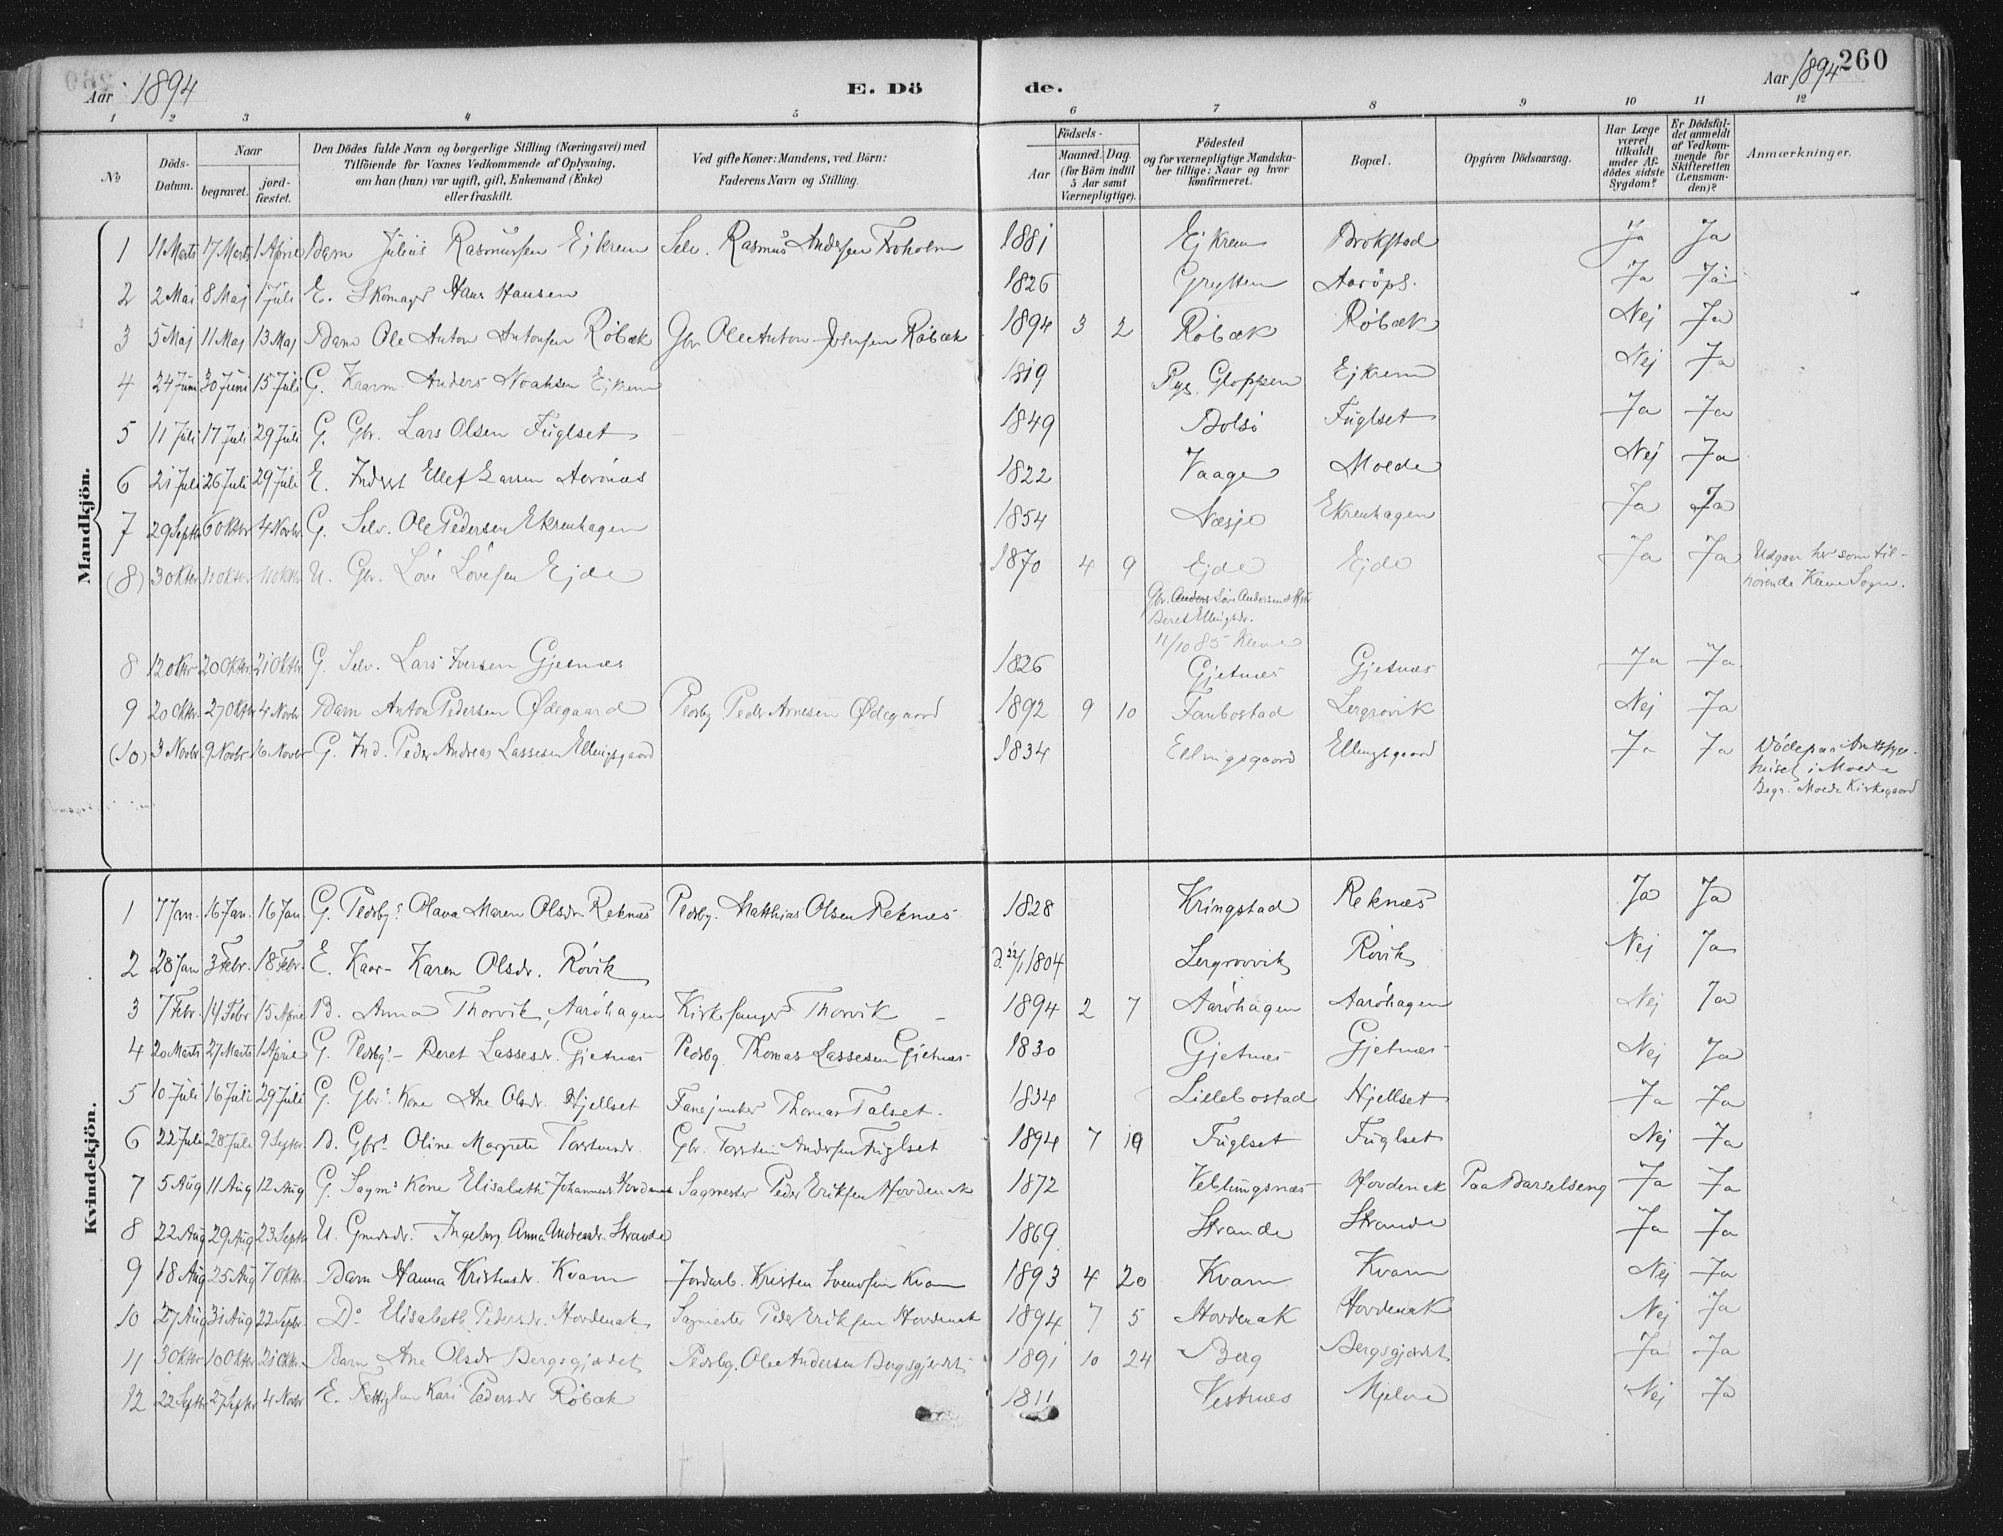 Aar 1894 E. Dö de. Aar 1894 260
1 2 3 4 5 6 7 8 9 10 11 12
No
Döds-Datum.
Naar
begravet. jord-fæstet.
Den Dödes fulde Navn og borgerlige Stilling (Næringsvei) med
Tilföiende for Voxnes Vedkommende af Oplysning,
om han (hun) var ugift, gift, Enkemand (Enke)
eller fraskilt.
Ved gifte Koner: Mandens, ved Börn:
Faderens Navn og Stilling.
Födsels-
Aar
Maaned. Dag.
(for Börn indtil
5 Aar samt
Værnepligtige).
Födested
og for værnepligtige Mandska-
ber tillige: Naar og hvor
konfirmeret.
Bopæl.
Opgiven Dödsaarsag.
Har Læge
været
tilkaldt
under Af-
dödes sidste
Sygdom?
Er Dödsfal-
det anmeldt
af Vedkom-
mende for
Skifteretten
(Lensman-
den)?
Anmærkninger.
Mandkjön.
1 11 Marts 17 Marts 1 April Barn Julius Rasmussen Ejkrem Selv. Rasmus Andersen Froholm 1881 Ejkrem Brokstad Ja Ja
2 2 Mai 8 Maj 1 Juli E. Skomager Hans Hansen 1826 Grytten Aaröps. Ja Ja
3 5 Maj 11 Maj 13 Maj Barn Ole Anton Antonsen Röbæk Gbr Ole Anton Johnsen Röbæk 1894 3 2 Röbæk Röbæk Nej Ja
4 24 Juni 30 Juni 15 Juli G. Kaarm. Anders Noahsen Ejkrem 1819 Pgs. Gloppen Ejkrem Nej Ja
5 11 Juli 17 Juli 29 Juli G. Gbr. Lars Olsen Fuglset 1849 Bolsö Fuglset Ja Ja
6 21 Juli 26 Juli 29 Juli E. Inderst Ellef Larsen Aarönæs 1822 Vaage Molde Nej Ja
7 29 Septbr 6 Oktbr 4 Novbr. G. Selv. Ole Pedersen Ekrenhagen 1854 Næsje Ekrenhagen Ja Ja
(8) 3 Oktbr. 11 Oktbr 11 Oktbr U. Gbr. Löve Lövesen Ejde 1870 4 9 Ejde Ejde Ja Ja Udgaar her som til-
hörende Kleve Sogn.
Gbr. Anders Löve Andersen & Hstr
Beret Ellingsdr.
11/10 85 Kleve
8 12 Oktbr 20 Oktbr 21 Oktbr G. Selv. Lars Iversen Gjetnæs 1826 Gjetnæs Gjetnæs Ja Ja
9 20 Oktbr. 27 Oktbr 4 Novbr Barn Anton Pedersen Ödegaard Pladsbg Peder Arnesen Ödegaard 1892 9 10 Taubostad Lergrovik Nej Ja
(10) 3 Novbr. 9 Novbr 16 Novbr G. Ind. Peder Andreas Lassesen Ellingsgaard 1834 Ellingsgaard Ellingsgaard Ja Ja Döde paa Amtssyge-
huset i Molde
Begr. Molde Kirkegaard
Kvindekjön.
1 7 Jan. 16 Jan. 16 Jan G. Pladsbgs Olava Maren Olsdr. Reknæs Pladsbg. Matthias Olsen Reknæs 1828 Kringstad Reknæs Ja Ja
2 28 Jan 3 Febr. 18 Febr. E. Kaar- Karen Olsdr. Rövik d. 22/1 1804 Lergrovvik Rövik Nej Ja
3 7 Febr. 14 Febr 15 April B. Anna Thorvik, Aaröhagen Kirkesanger Thorvik 1894 2 7 Aaröhagen Aaröhagen Nej Ja
4 20 Marts 27 Marts 1 April G. Pladsbgs- Beret Lassesdr. Gjetnæs Pladsbg. Thomas Lassesen Gjetnæs 1830 Gjetnæs Gjetnæs Nej Ja
5 10 Juli 16 Juli 29 Juli G. Gbrs. Kone Ane Olsdr. Hjellset Fanejunker Thomas Talset. 1834 Lillebostad Hjellset Ja Ja
6 22 Juli 28 Juli 9 Septbr. B. Gbrs Oline Margrete Torstensdr. Gbr. Torstein Andersen Fuglset 1894 7 19 Fuglset Fuglset Nej Ja
7 5 Aug 11 Aug 12 Aug G. Sagms Kone Elisabeth Johannesdr. Hovdenak Sagmester Peder Eriksen Hovdenak 1872 Veblungsnæs Hovdenak Paa Barselseng Ja Ja
8 22 Aug 29 Aug 23 Septbr U. Ingeborg Anna Andreasdr. Strande 1869 Strande Strande Ja Ja
9 18 Aug 25 Aug 7 Oktbr. Barn Hanna Kristensdr. Kvam Jordarb. Kristen Svendsen Kvam 1893 4 20 Kvam Kvam Nej Ja
10 27 Aug 31 Aug 22 Septbr Do Elisabeth Pedersdr. Hovdenak Sagmester Peder Eriksen Hovdenak 1894 7 5 Hovdenak Hovdenak Nej Ja
11 3 Oktbr 10 Oktbr 21 Oktbr. Barn Ane Olsdr Bergsgjærdet Pladsbg. Ole Andersen Bergsgjerdet 1891 10 24 Berg Bergsgjærdet Ja Ja
12 22 Septbr 27 Septbr 4 Novbr E. Fattiglem Kari Pedersdr Röbæk 1811 Vestnæs Mjelve Nej Ja